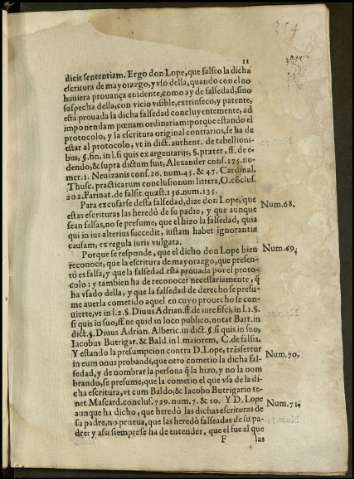 11
dicit sententiam. Ergo don Lope, que falseo la dicha
escritura de mayorazgo, y vso della, quando con el no
huuiera prouança euidente, como ay de falsedad, sino
sospecha della, con vicio visible, extrinseco, y patente,
està prouada la dicha falsedad concluyentemente, ad
imponendam pœnam ordinariam: porque estando el
protocolo, y la escritura original contrarios, se ha de
estar al protocolo, vt in dict. authent. de tabellioni-
bus, §. fin. in l. si quis ex argentarijs, §. prater. ff. de e-
dendo, & supra dictum fuit, Alexander cons. 175. nu-
mer. 1. Neuizanis cons. 26. num. 45. & 47. Cardinal.
Thusc. practicarum conclusionum littera, O. cõclus.
202. Farinat. de falsit. quæst. 156. num. 135.
Para escusarse desta falsedad, dize don Lope, que
estas escrituras las heredò de su padre, y que aunque
sean falsas, no se presume, que el hizo la falsedad, quia
qui in ius alterius succedit, iustam habet ignorantiæ
causam, ex regula iuris vulgata.
Num. 68.
Porque se responde, que el dicho don Lope bien
reconoce, que la escritura de mayorazgo, que presen-
tò es falsa, y que la falsedad està prouada por el proto-
colo: y tambien ha de reconocer necessariamente, q̃
ha vsado della, y que la falsedad de derecho se presu-
me auerla cometido aquel en cuyo prouecho se con-
uierte, vt in l. 2. §. Diuus Adrian. ff. de iure fisci, in l. 2. §.
si quis in suo, ff. ne quid in loco publico, notat Bart. in
dict. §. Diuus Adrian. Alberic. in dict. §. si quis in suo,
Iacobus Butrigar. & Bald. in l. maiorem, C. de falsis.
Num. 69.
Y estando la presumpcion contra D. Lope, trãsfertur
in eum onus probandi, que otro cometio la dicha fal-
sedad, y de nombrar la persona q̃ la hizo, y no la nom
brando, se presume, que la cometio el que vsa de la di-
cha escritura, vt cum Baldo, & Iacobo Butrigario te-
net Mascard. conclus. 729. num. 7. & 10.
Num. 70.
Y D. Lope
aunque ha dicho, que heredò las dichas escrituras de
su padre, no prueua, que las heredò falseadas de su pa-
dre: y assi siempre se ha de entender, que el fue el que
Num. 71.
F
las